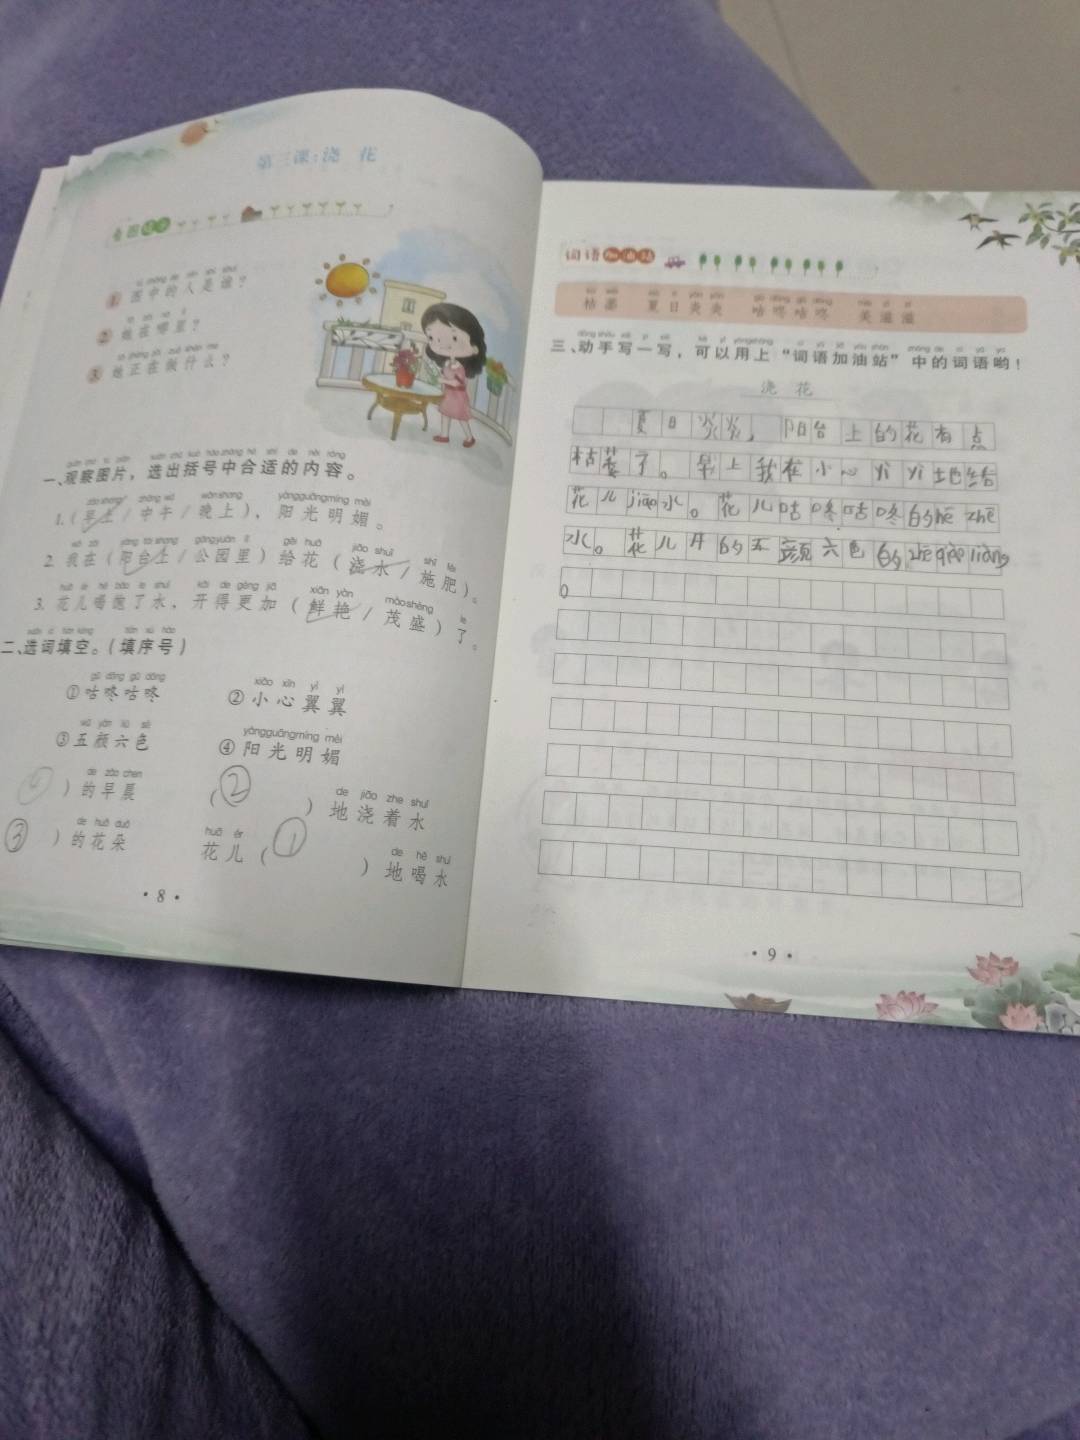 第三课：浇 花
看图
tú zhōng de rén shì shuí
1 图中的人是谁？
2 她在哪里？
tā zhèng zài zuò shén me
3 她正在做什么？
guān chá tú piàn xuǎn chū kuò hào zhōng hé shì de nèi róng
一、观察图片，选出括号中合适的内容。
zǎo shang zhōng wǔ wǎn shang yángguāngmíng mèi
1.（早上/中午/晚上），阳光明媚。
wǒ zài yáng tái shang gōngyuán lǐ gěi huā jiāo shuǐ shī féi
2. 我在（阳台上/公园里）给花（浇水/施肥）。
huā ér hē bǎo le shuǐ kāi de gèng jiā xiān yàn mào shèng le
3. 花儿喝饱了水，开得更加（鲜艳/茂盛）了。
xuǎn cí tián kòng tián xù hào
二、选词填空。（填序号）
gū dōng gū dōng xiǎo xīn yì yì
①咕咚咕咚 ②小心翼翼
wǔ yán liù sè yángguāngmíng mèi
③五颜六色 ④阳光明媚
de zǎo chen de jiāo zhe shuǐ
④ ）的早晨 （ ② ）地浇着水
de huā duǒ huā ér de hē shuǐ
③ ）的花朵 花儿（ ① ）地喝水
· 8 ·
词语加油站
枯萎 夏日炎炎 咕咚咕咚 美滋滋
dòng shǒu xiě yi xiě kě yǐ yòngshàng cí yǔ jiā yóu zhàn zhōng de cí yǔ yo
三、动手写一写，可以用上“词语加油站”中的词语哟！
浇 花
夏日炎炎，阳台上的花有点
枯萎了。早上我在小心yì yì地给
花儿jiāo水。花儿咕咚咕咚的hē zhē
水。花儿开的五颜六色的，zhē qiào liàng
。
· 9 ·